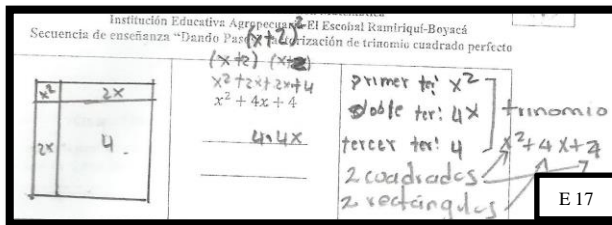 Institución Educativa Agropecuaria El Escobal Ramiriquí-Boyacá
Secuencia de enseñanza "Dando Pasos factorización de trinomio cuadrado perfecto
(x+2)²
(x+2) (x+2)
x²+2x+2x+4
x² + 4x + 4
4.4x
x² 2x
2x 4.
primer ter: x²
doble ter: 4x
tercer ter: 4
trinomio
x²+4x+4
2 cuadrados
2 rectángulos
E 17